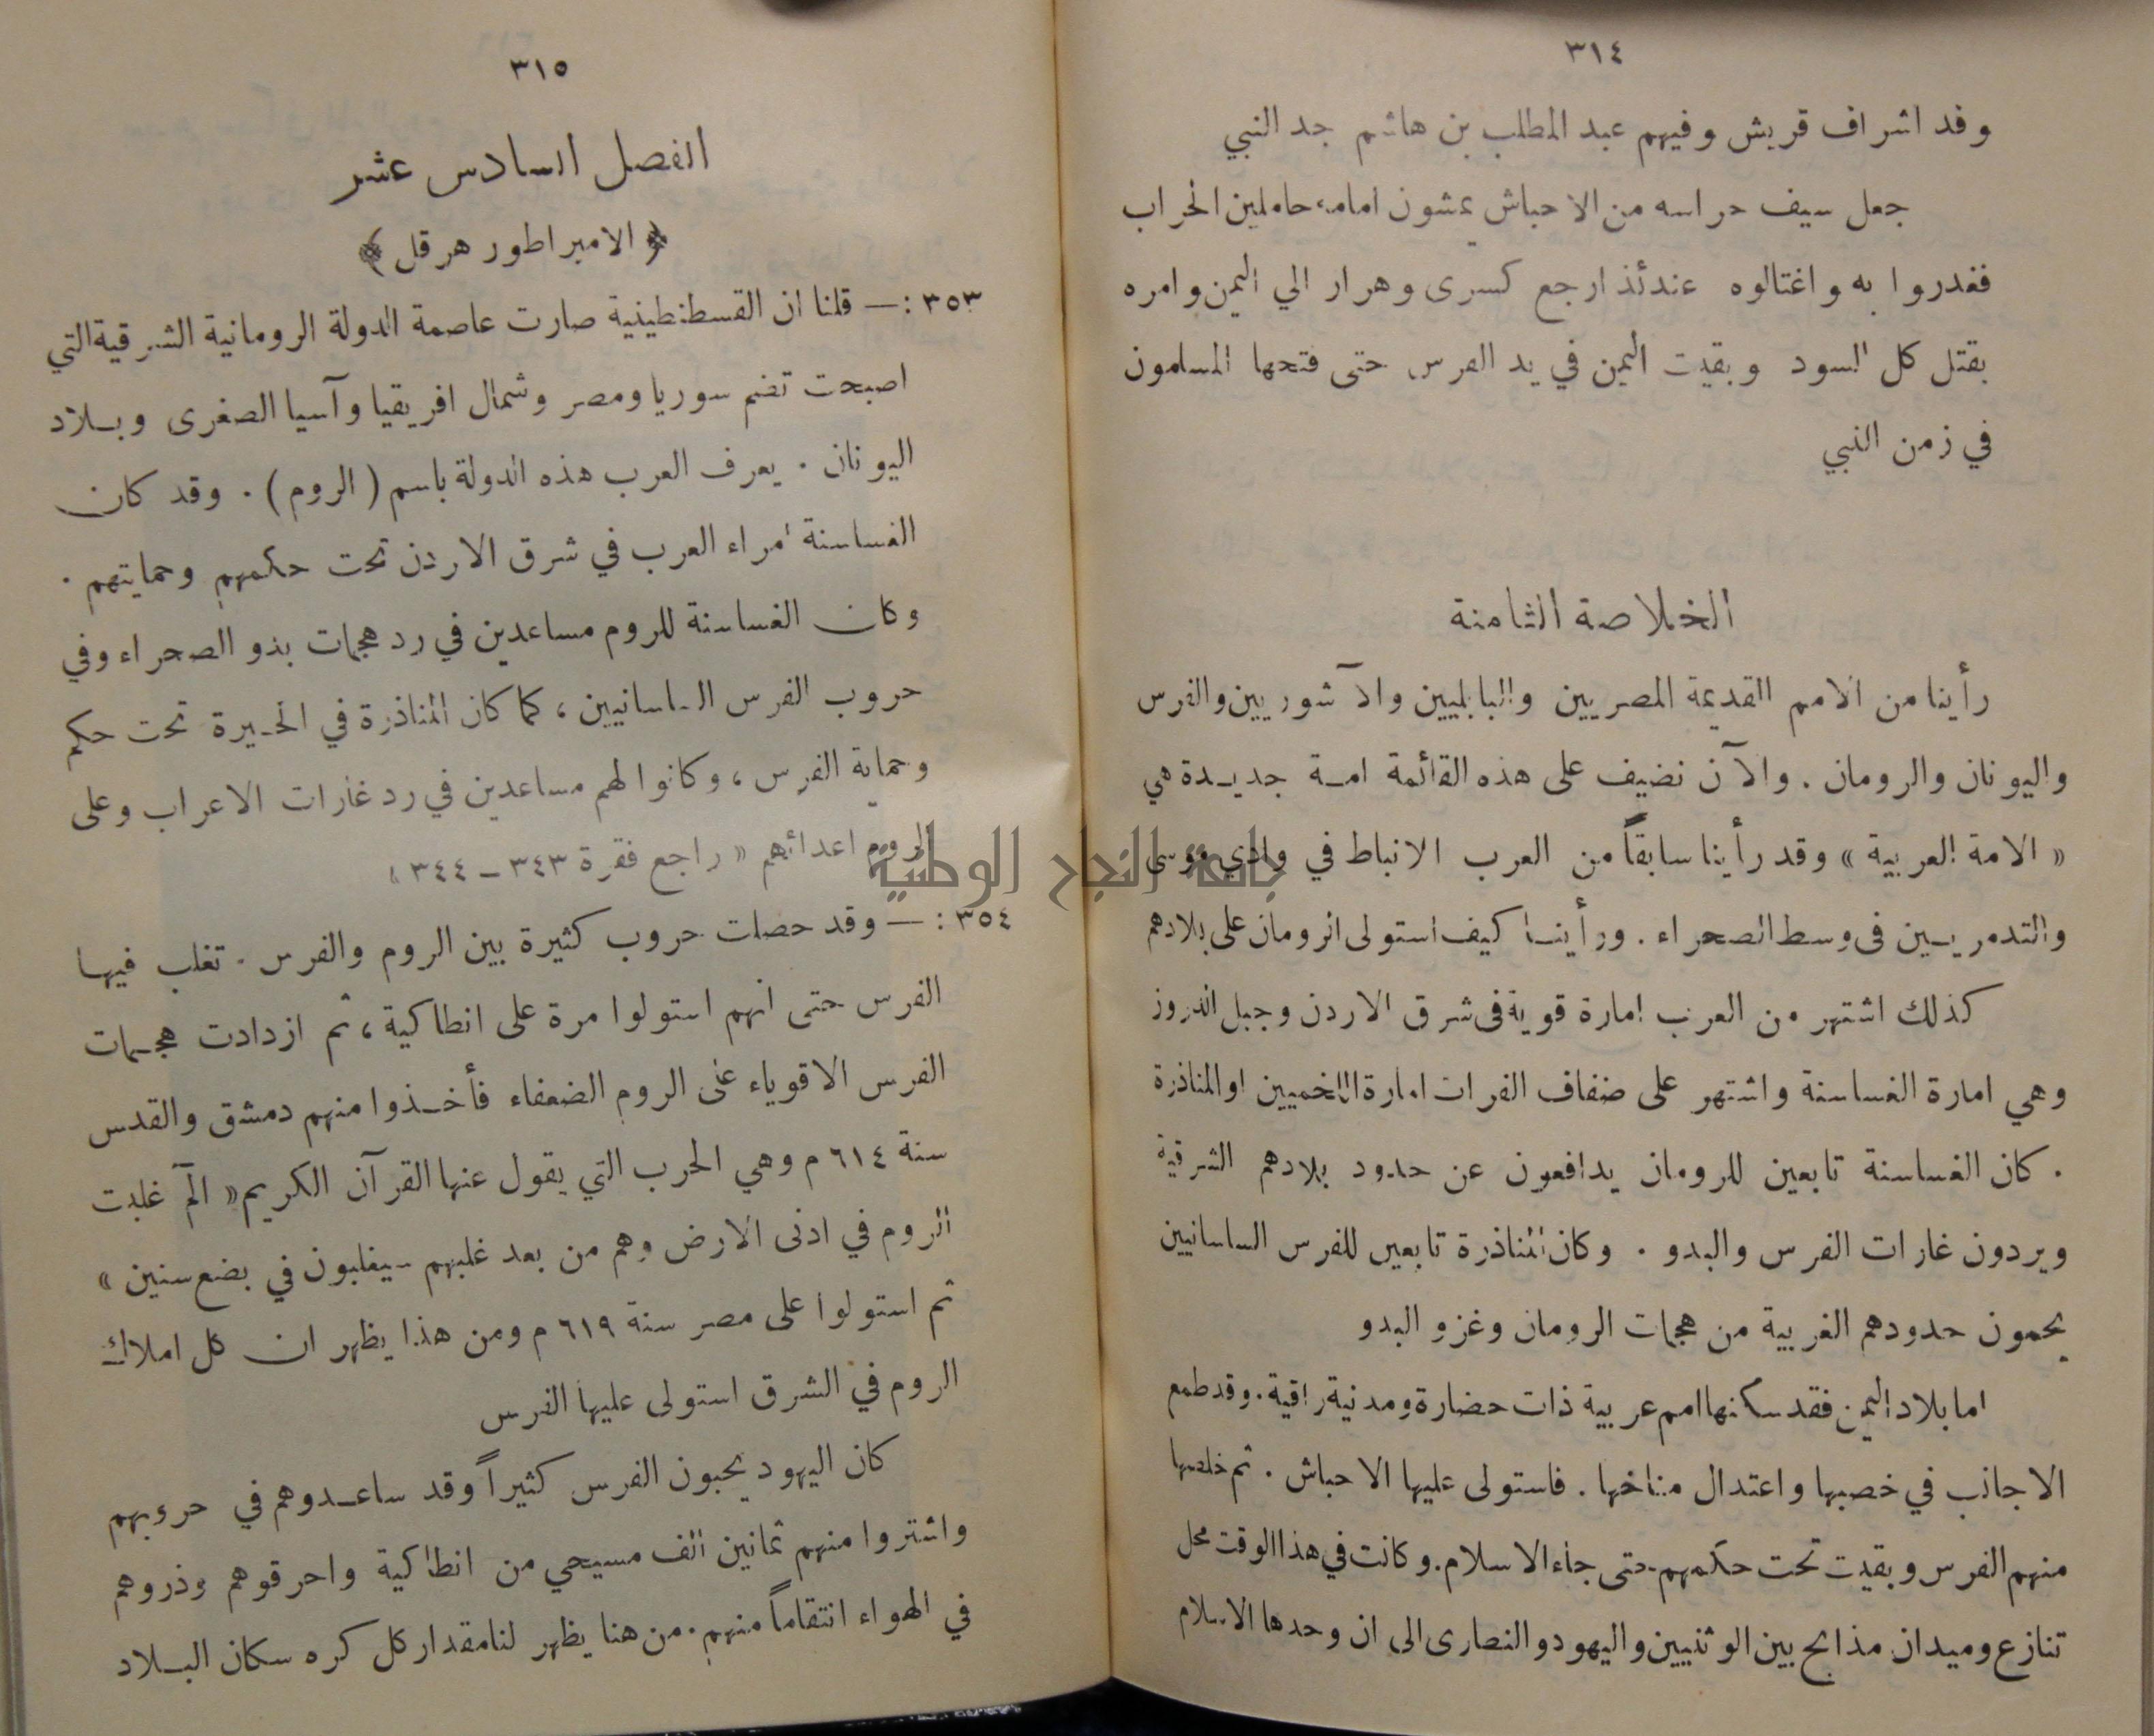 ٣١٤
وفد اشراف قريش وفيهم عبد المطلب بن هاشم جد النبي
جعل سيف حراسه من الاحباش يمشون امامه حاملين الحراب
فغدروا به واغتالوه عندئذ ارجع كسرى وهرار الي اليمن وامره
بقتل كل السود وبقيت اليمن في يد الفرس حتى فتحها المسلمون
في زمن النبي
الخلاصة الثامنة
رأينا من الامم القديمة المصريين والبابليين والآشوريين والفرس
واليونان والرومان . والآن نضيف على هذه القائمة امة جديدة هي
« الامة العربية » وقد رأينا سابقاً من العرب الانباط في وادي موسى
والتدمريين فى وسط الصحراء . ورأينا كيف استولى الرومان على بلادهم
كذلك اشتهر من العرب امارة قوية فى شرق الاردن وجبل الدروز
وهي امارة الغساسنة واشتهر على ضفاف الفرات امارة اللخميين او المناذرة
. كان الغساسنة تابعين للرومان يدافعون عن حدود بلادهم الشرقية
ويردون غارات الفرس والبدو . وكان المناذرة تابعين للفرس الساسانيين
يحمون حدودهم الغربية من هجمات الرومان وغزو البدو
اما بلاد اليمن فقد سكنها امم عربية ذات حضارة ومدنية راقية . وقد طمع
الاجانب في خصبها واعتدال مناخها . فاستولى عليها الاحباش . ثم خلصها
منهم الفرس وبقيت تحت حكمهم حتى جاء الاسلام . وكانت في هذا الوقت محل
تنازع وميدان مذابح بين الوثنيين واليهود والنصارى الى ان وحدها الاسلام
٣١٥
الفصل السادس عشر
﴿ الامبراطور هرقل ﴾
٣٥٣ : — قلنا ان القسطنطينية صارت عاصمة الدولة الرومانية الشرقية التي
اصبحت تضم سوريا ومصر وشمال افريقيا وآسيا الصغرى وبلاد
اليونان . يعرف العرب هذه الدولة باسم ( الروم ) . وقد كان
الغساسنة امراء العرب في شرق الاردن تحت حكمهم وحمايتهم .
وكان الغساسنة للروم مساعدين في رد هجمات بدو الصحراء وفي
حروب الفرس الساسانيين ، كما كان المناذرة في الحيرة تحت حكم
وحماية الفرس ، وكانوا لهم مساعدين في رد غارات الاعراب وعلى
الروم اعدائهم « راجع فقرة ٣٤٣ – ٣٤٤ »
جامعة النجاح الوطنية
٣٥٤ : — وقد حصلت حروب كثيرة بين الروم والفرس . تغلب فيها
الفرس حتى انهم استولوا مرة على انطاكية ، ثم ازدادت هجمات
الفرس الاقوياء على الروم الضعفاء فأخذوا منهم دمشق والقدس
سنة ٦١٤ م وهي الحرب التي يقول عنها القرآن الكريم « الٓم غلبت
الروم في ادنى الارض وهم من بعد غلبهم سيغلبون في بضع سنين »
ثم استولوا على مصر سنة ٦١٩ م ومن هذا يظهر ان كل املاك
الروم في الشرق استولى عليها الفرس
كان اليهود يحبون الفرس كثيراً وقد ساعدوهم في حروبهم
واشتروا منهم ثمانين الف مسيحي من انطاكية واحرقوهم وذروهم
في الهواء انتقاماً منهم . من هنا يظهر لنا مقدار كل كره سكان البلاد